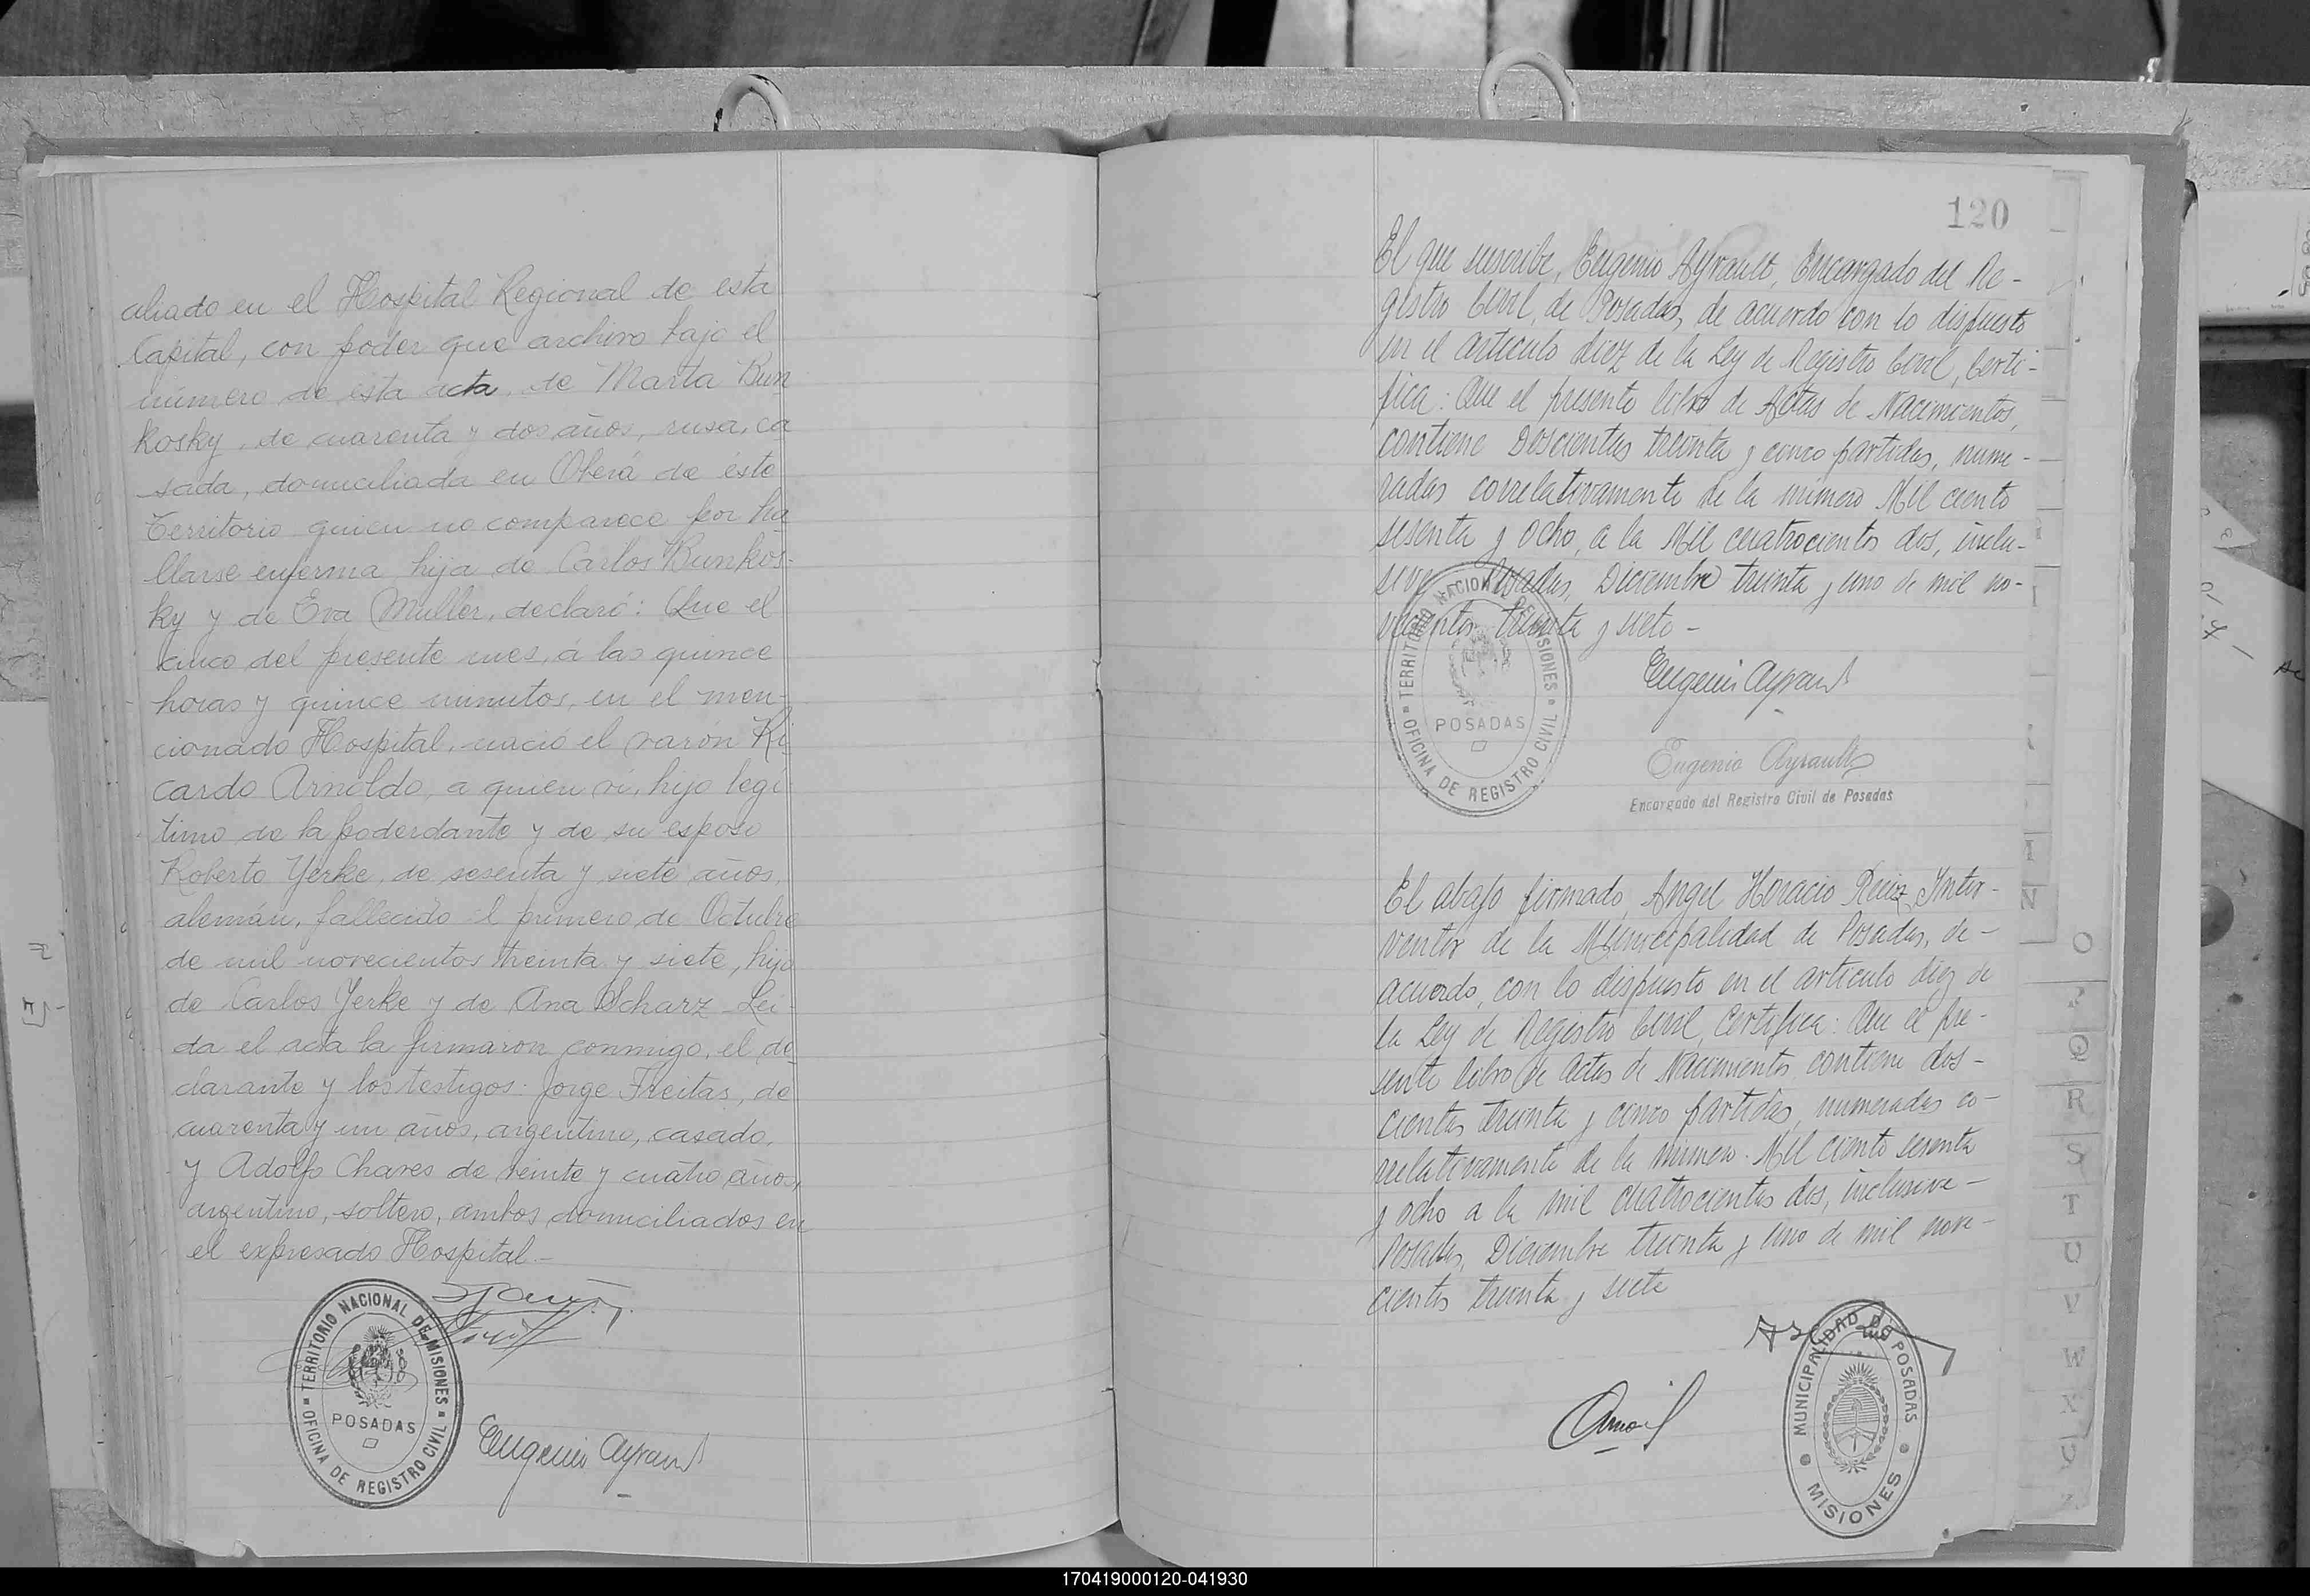 aliado en el Hospital Regional de esta
Capital, con poder que archivo bajo el
número de esta acta, de Marta Bun
kosky, de cuarenta y dos años, rusa, ca
sada, domiciliada en Oberá de éste
Territorio quien no comparece por ha
llarse enferma hija de Carlos Bunkos-
ky y de Eva Muller, declaró: Que el
cinco del presente mes, á las quince
horas y quince minutos, en el men-
cionado Hospital, nació el varón Ri
cardo Arnoldo, a quien ví, hijo legi
timo de la poderdante y de su esposo
Roberto Yerke, de sesenta y siete años,
alemán, fallecido el primero de Octubre
de mil novecientos treinta y siete, hijo
de Carlos Yerke y de Ana Scharz - Lei-
da el acta la firmaron conmigo, el de
clarante y los testigos: Jorge Freitas, de
cuarenta y un años, argentino, casado,
y Adolfo Chaves de veinte y cuatro años,
argentino, soltero, ambos domiciliados en
el expresado Hospital.-
TERRITORIO NACIONAL DE MISIONES
POSADAS
OFICINA DE REGISTRO CIVIL
Eugenio Ayrault
120
El que suscribe, Eugenio Ayrault, Encargado del Re-
gistro Civil, de Posadas, de acuerdo con lo dispuesto
en el articulo diez de la Ley de Registro Civil, Certi-
fica: Que el presente libro de Actas de Nacimientos,
contiene Doscientas treinta y cinco partidas, nume-
radas correlativamente de la número Mil ciento
sesenta y ocho, a la Mil cuatrocientos dos, inclu-
sive Posadas, Diciembre treinta y uno de mil no-
vecientos treinta y siete -
TERRITORIO NACIONAL DE MISIONES
POSADAS
OFICINA DE REGISTRO CIVIL
Eugenio Ayrault
Eugenio Ayrault
Encargado del Registro Civil de Posadas
El abajo firmado, Angel Horacio Ruiz, Inter-
ventor de la Municipalidad de Posadas, de-
acuerdo, con lo dispuesto en el articulo diez de
la Ley de Registro Civil, Certifica: Que el pre-
sente libro de Actas de Nacimientos contiene dos-
cientas treinta y cinco partidas, numeradas co-
rrelativamente de la número. Mil ciento sesenta
y ocho a la mil cuatrocientos dos, inclusive -
Posadas, Diciembre treinta y uno de mil nove-
cientos treinta y siete
MUNICIPALIDAD DE POSADAS
MISIONES
I
N
O
P
Q
R
S
T
U
V
W
X
170419000120-041930